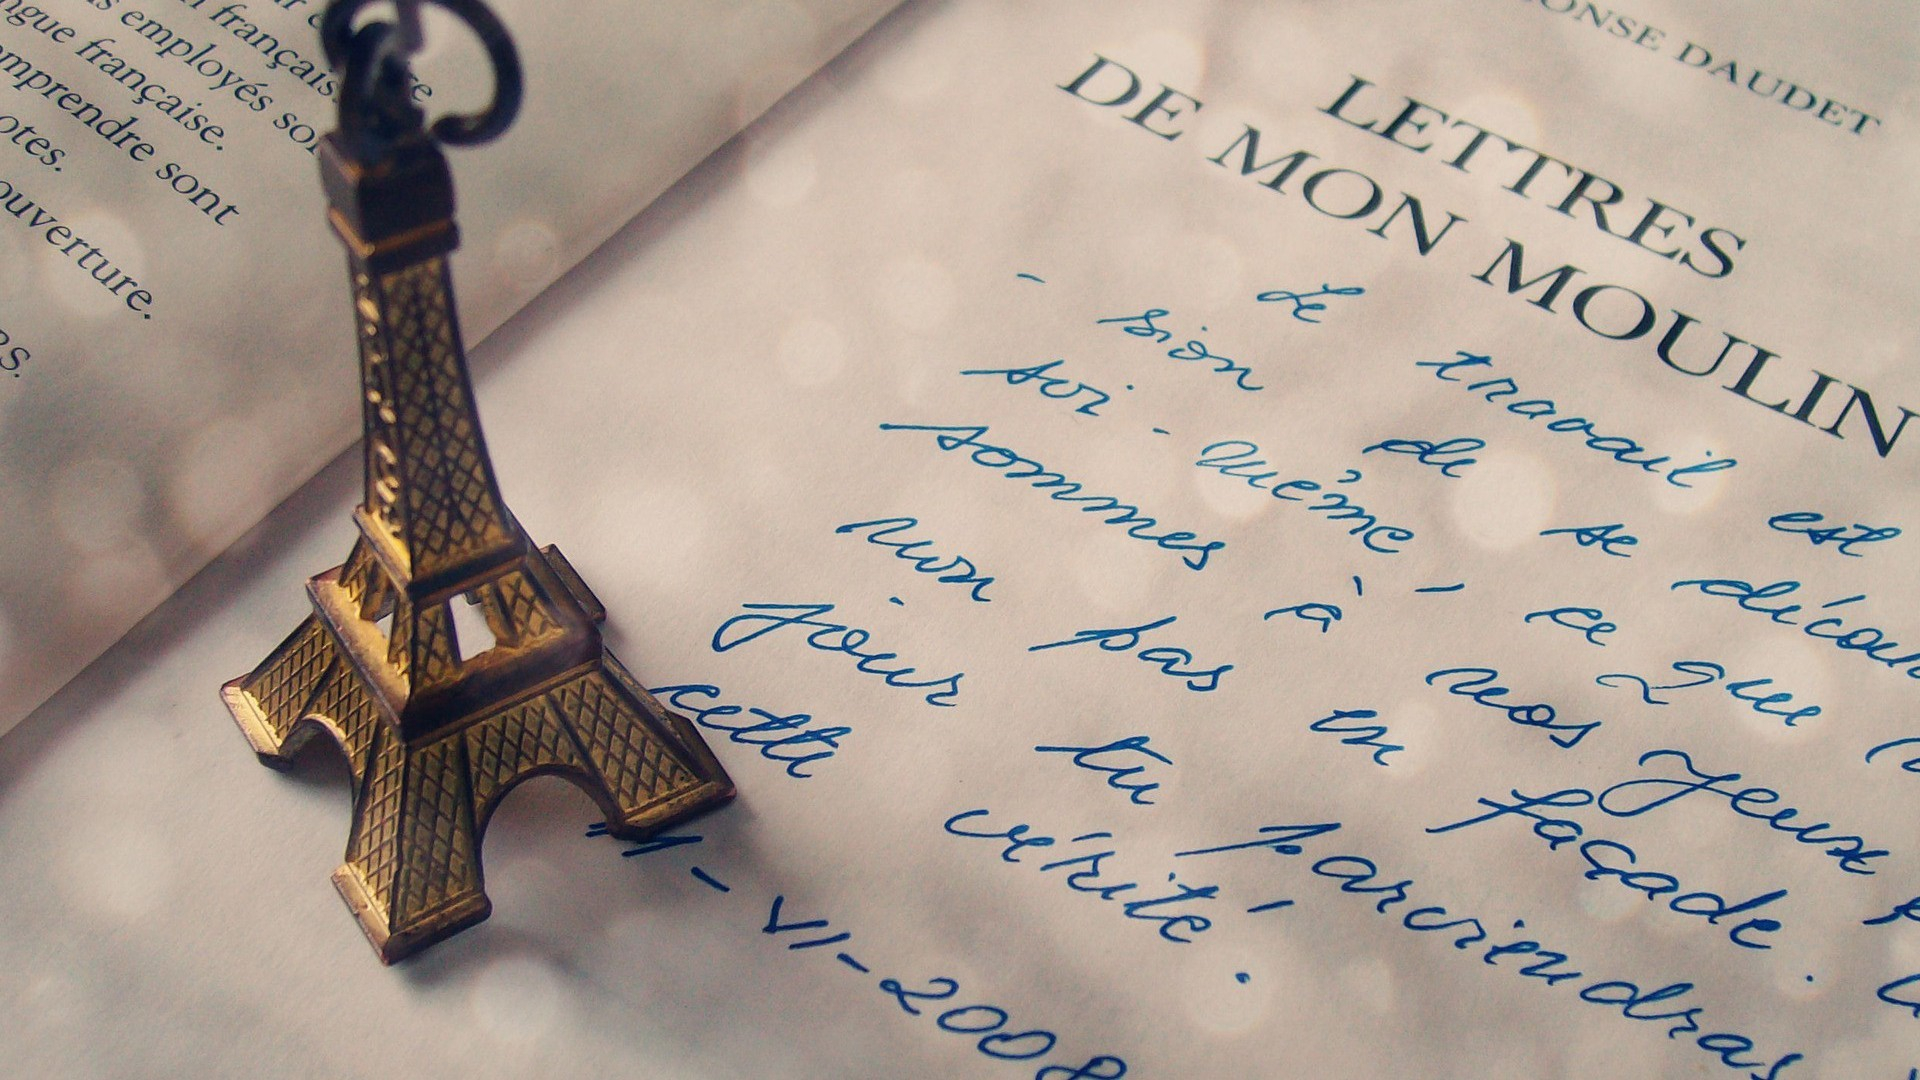 français
s employés so
ngue française.
omprendre sont
otes.
ouverture.
RS.
ONSE DAUDET
LETTRES
DE MON MOULIN
Le travail est
- sion de se décou
soi-même, ce que
sommes à nos yeux
non pas en façade.
jour tu parviendras
cette vérité.
-VI-2008